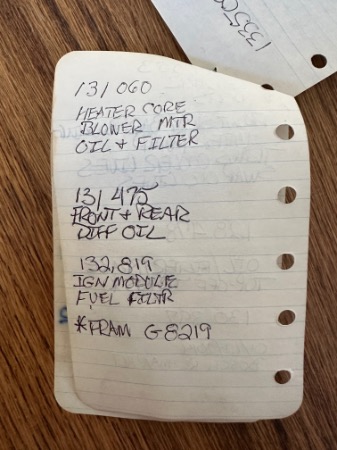 131060
HEATER CORE
BLOWER MTR
OIL & FILTER
131,475
FRONT & REAR
DIFF OIL
132,819
IGN MODULE
FUEL FILTR
*FRAM G8219